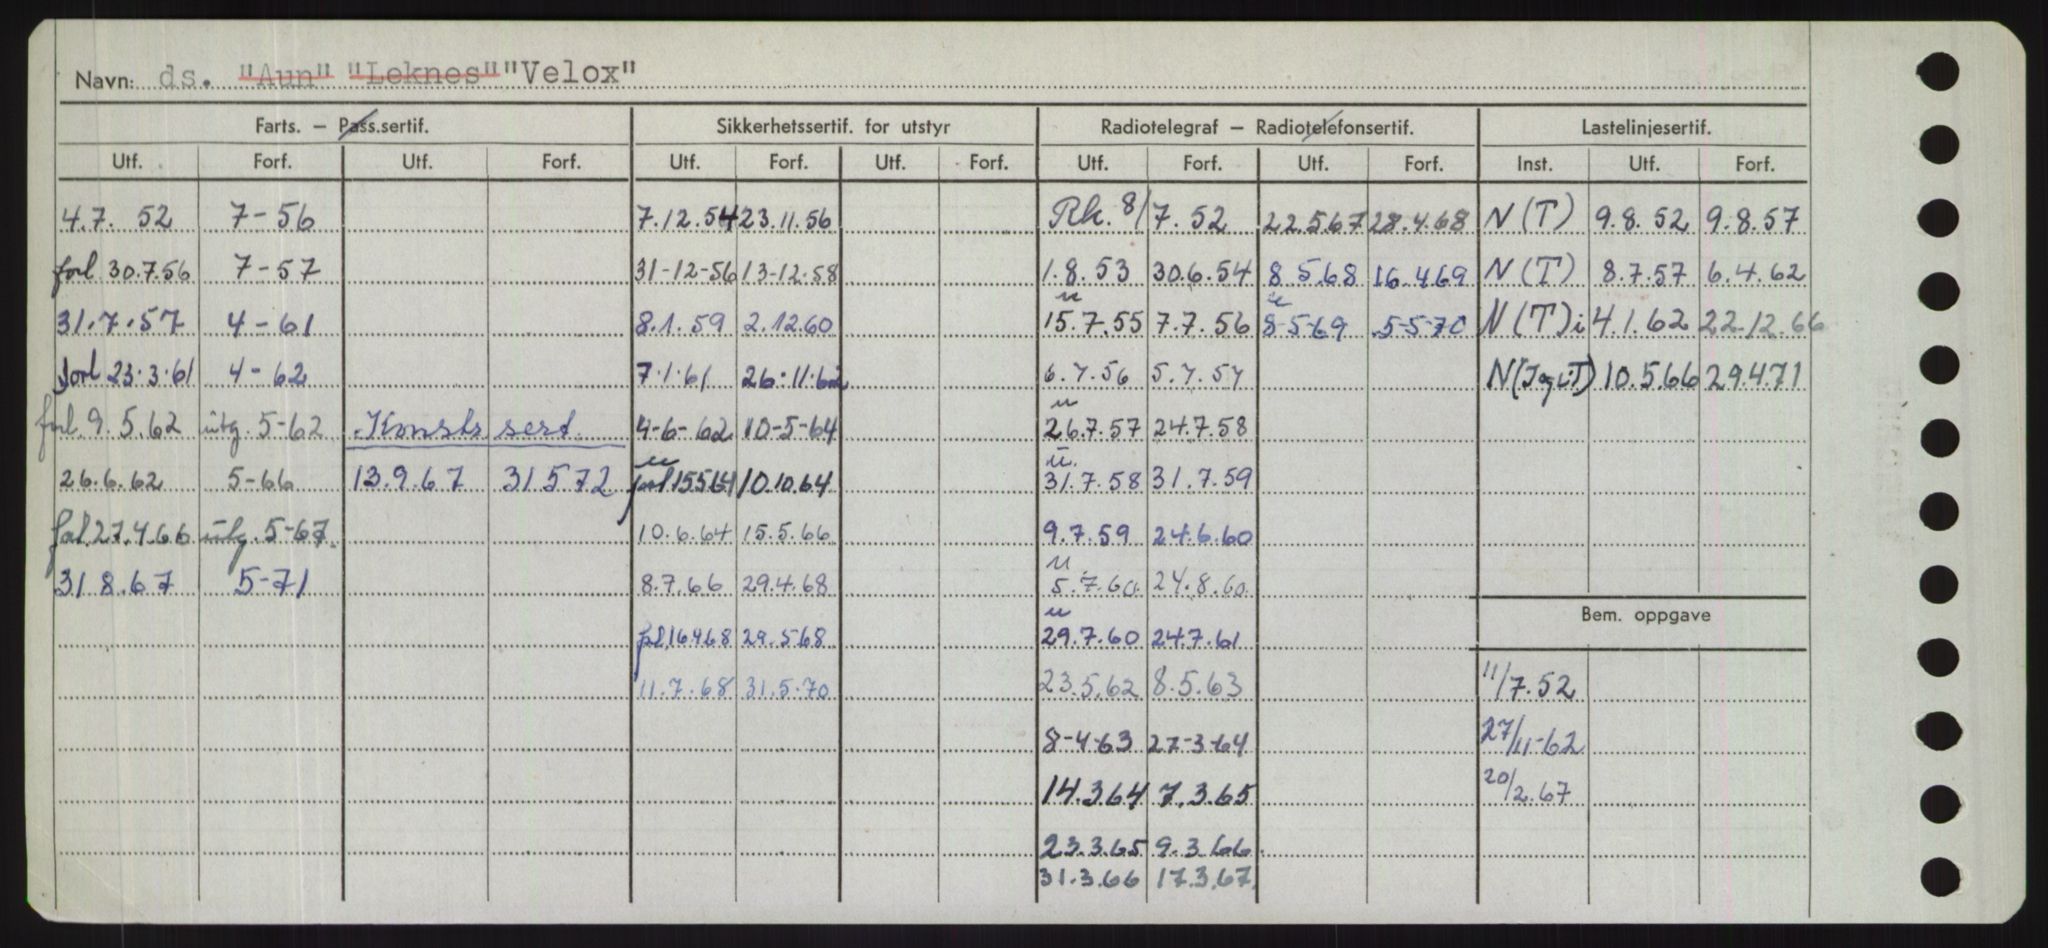 Navn: ds. "Aun" "Leknes" "Velox"
Farts. – Pass.sertif. Sikkerhetssertif. for utstyr Radiotelegraf – Radiotelefonsertif. Lastelinjesertif.
Utf. Forf. Utf. Forf. Utf. Forf. Utf. Forf. Utf. Forf. Utf. Forf. Inst. Utf. Forf.
4.7. 52 7-56 7.12.54 23.11.56 Rk. 8/7.52 22.5.67 28.4.68 N(T) 9.8.52 9.8.57
forl 30.7.56 7-57 31-12-56 13-12-58 1.8.53 30.6.54 8.5.68 16.4.69 N(T) 8.7.57 6.4.62
31.7.57 4-61 8.1.59 2.12.60 u 15.7.55 7.7.56 u 8-5-69 5-5-70 N(T)i 4.1.62 22.12.66
forl 23.3.61 4-62 7.1.61 26.11.62 6.7.56 5.7.57 N(I og i T) 10.5.66 29.4.71
forl. 9.5.62 utg. 5-62 Konstr sert. 4-6-62 10-5-64 u 26.7.57 24.7.58
26.6.62 5-66 13.9.67 31 5 72 u forl 15564 10.10.64 u. 31.7.58 31.7.59
forl. 27.4.66 utg. 5-67 10.6.64 15.5.66 9.7.59 24.6.60
31 8.67 5-71 8.7.66 29.4.68 u 5.7.60 24.8.60
Bem. oppgave
forl 16468 29.5.68 u 29.7.60 24.7.61
11.7.68 31.5.70 23.5.62 8.5.63 11/7.52
8-4-63 27-3-64 27/11-62
14.3.64 7.3.65 20/2.67
23.3.65 9.3.66
31.3.66 17.3.67